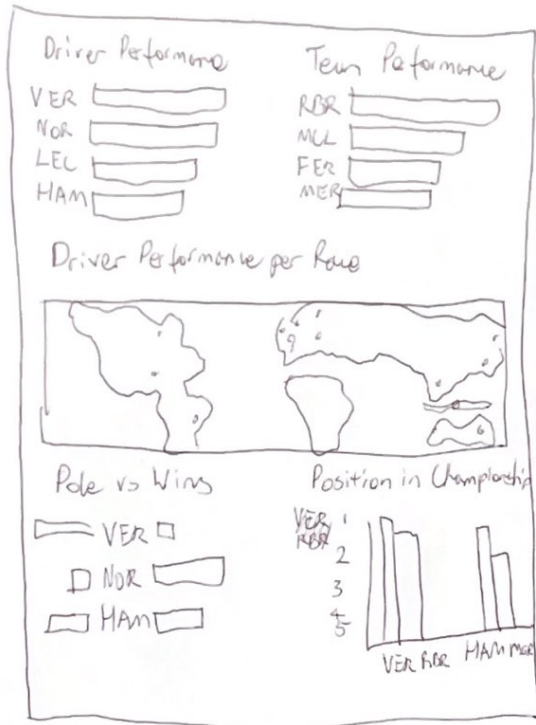 Driver Performance
VER
NOR
LEC
HAM
Team Performance
RBR
MCL
FER
MER
Driver Performance per Race
Pole vs Wins
VER
NOR
HAM
Position in Championship
VER 1
RBR
2
3
4
5
VER RBR HAM MER